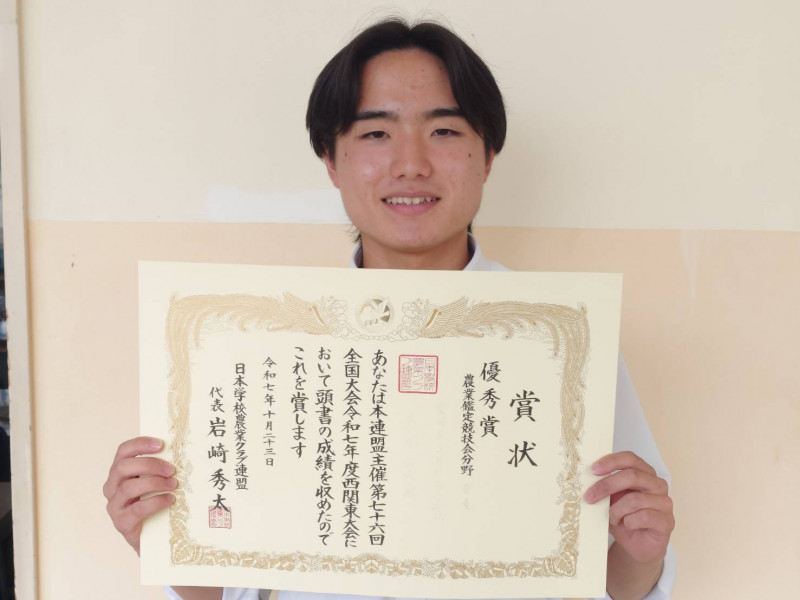 賞状
優秀賞
農業鑑定競技会分野
あなたは本連盟主催第七十六回
全国大会令和七年度西関東大会に
おいて頭書の成績を収めたので
これを賞します
令和七年十月二十三日
日本学校農業クラブ連盟
代表 岩崎秀太